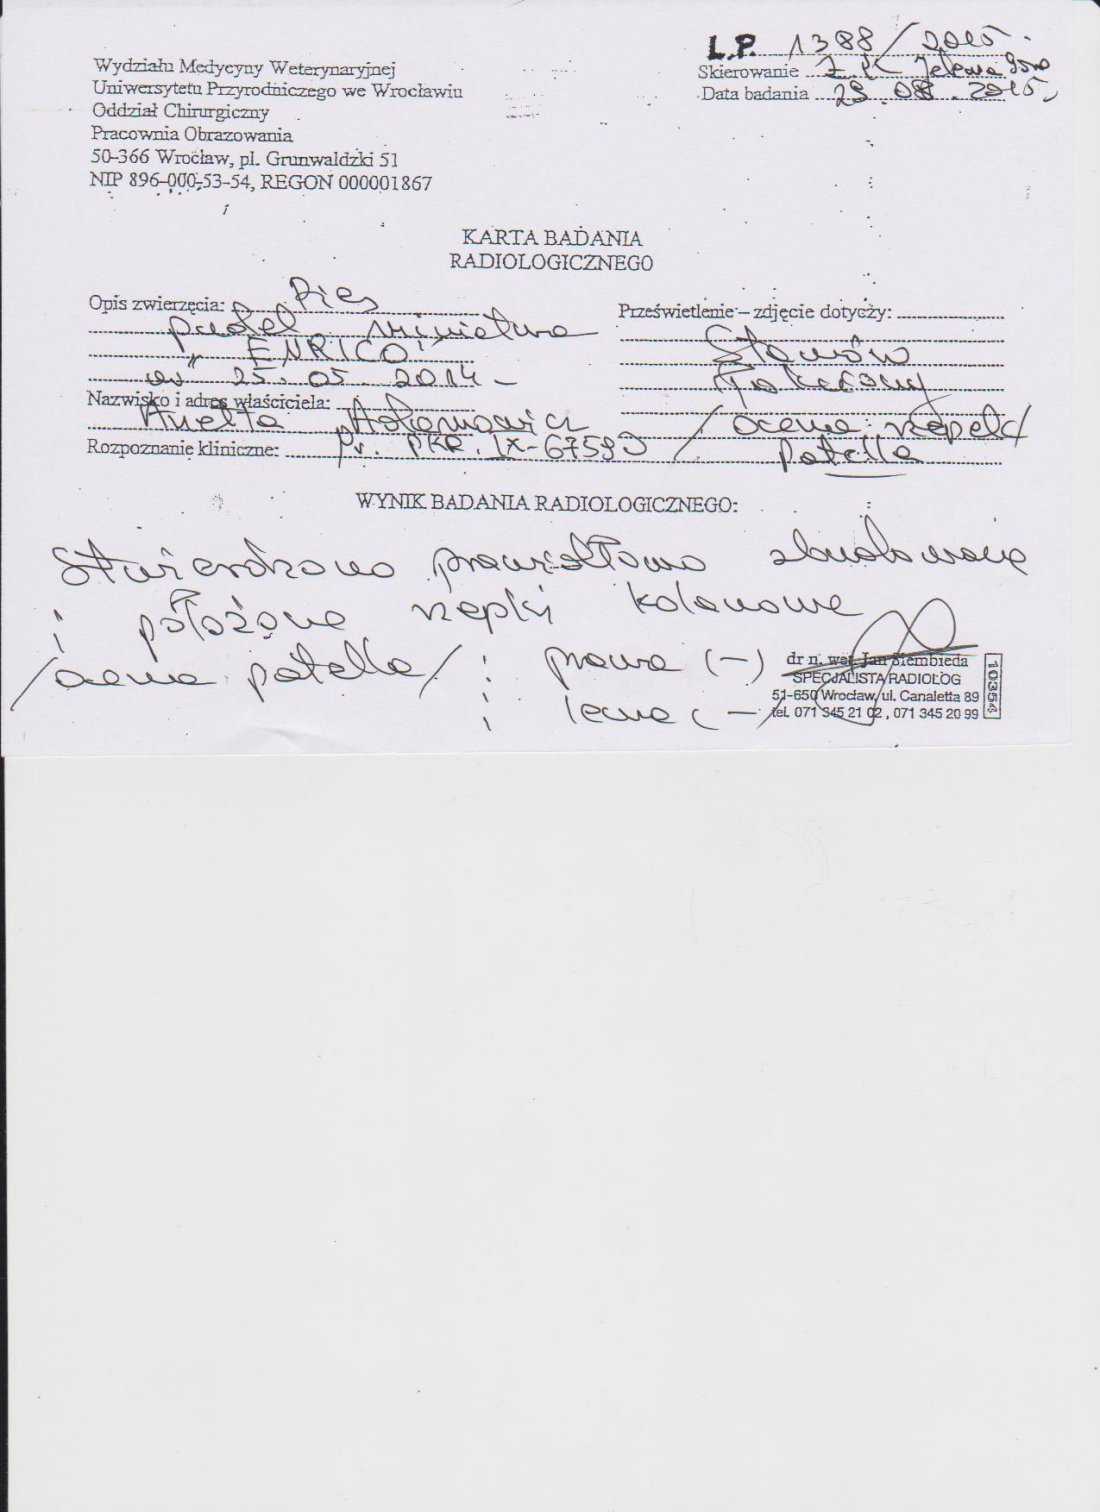 Wydziału Medycyny Weterynaryjnej
Uniwersytetu Przyrodniczego we Wrocławiu
Oddział Chirurgiczny
Pracownia Obrazowania
50-366 Wrocław, pl. Grunwaldzki 51
NIP 896-000-53-54, REGON 000001867
L.P. 1388/2015.
Skierowanie Z.K. Jelenia Góra
Data badania 29.08.2015.
KARTA BADANIA
RADIOLOGICZNEGO
Opis zwierzęcia: Pies
pudel miniatura
„ENRICO"
ur 25.05 2014-
Prześwietlenie – zdjęcie dotyczy:
Stawów
/ocena rzepek/
patella
Nazwisko i adres właściciela:
Anetta Adamowicz
Rozpoznanie kliniczne: PKR.IX-67590
WYNIK BADANIA RADIOLOGICZNEGO:
Stwierdzono prawidłowo zbudowane
i położone rzepki kolanowe
/ocena patella/: prawa (-)
lewa (-)
dr n. wet. Jan Siembieda
SPECJALISTA RADIOLOG
51-650 Wrocław, ul. Canaletta 89
tel. 071 345 21 02, 071 345 20 99
10354